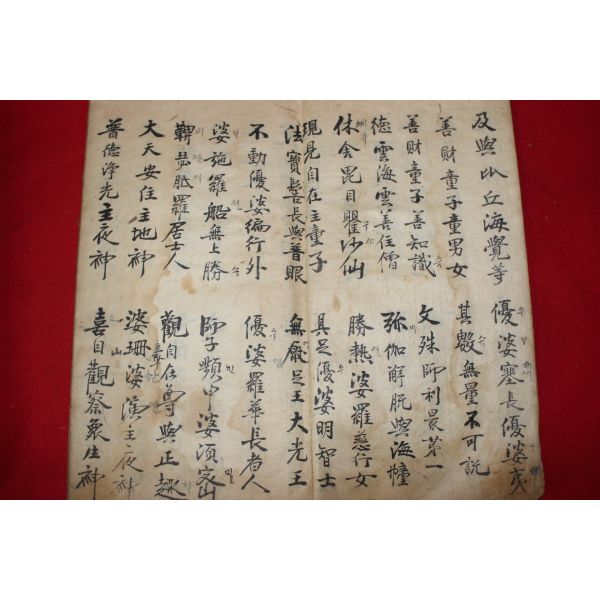 及與比丘海覺等 優婆塞長優婆夷
善財童子童男女 其數無量不可說
善財童子善知識 文殊師利最第一
德雲海雲善住僧 弥伽解脫與海幢
休舍毘目瞿沙仙 勝熱婆羅慈行女
現見自在主童子 具足優婆明智士
法寶髻長與普眼 無厭足王大光王
不動優婆徧行外 優婆羅華長者人
婆施羅船無上勝 師子嚬中婆須密
鞞瑟胝羅居士人 觀自在尊與正趣
大天安住主地神 婆珊婆演主夜神
普德淨光主夜神 喜目觀察衆生神